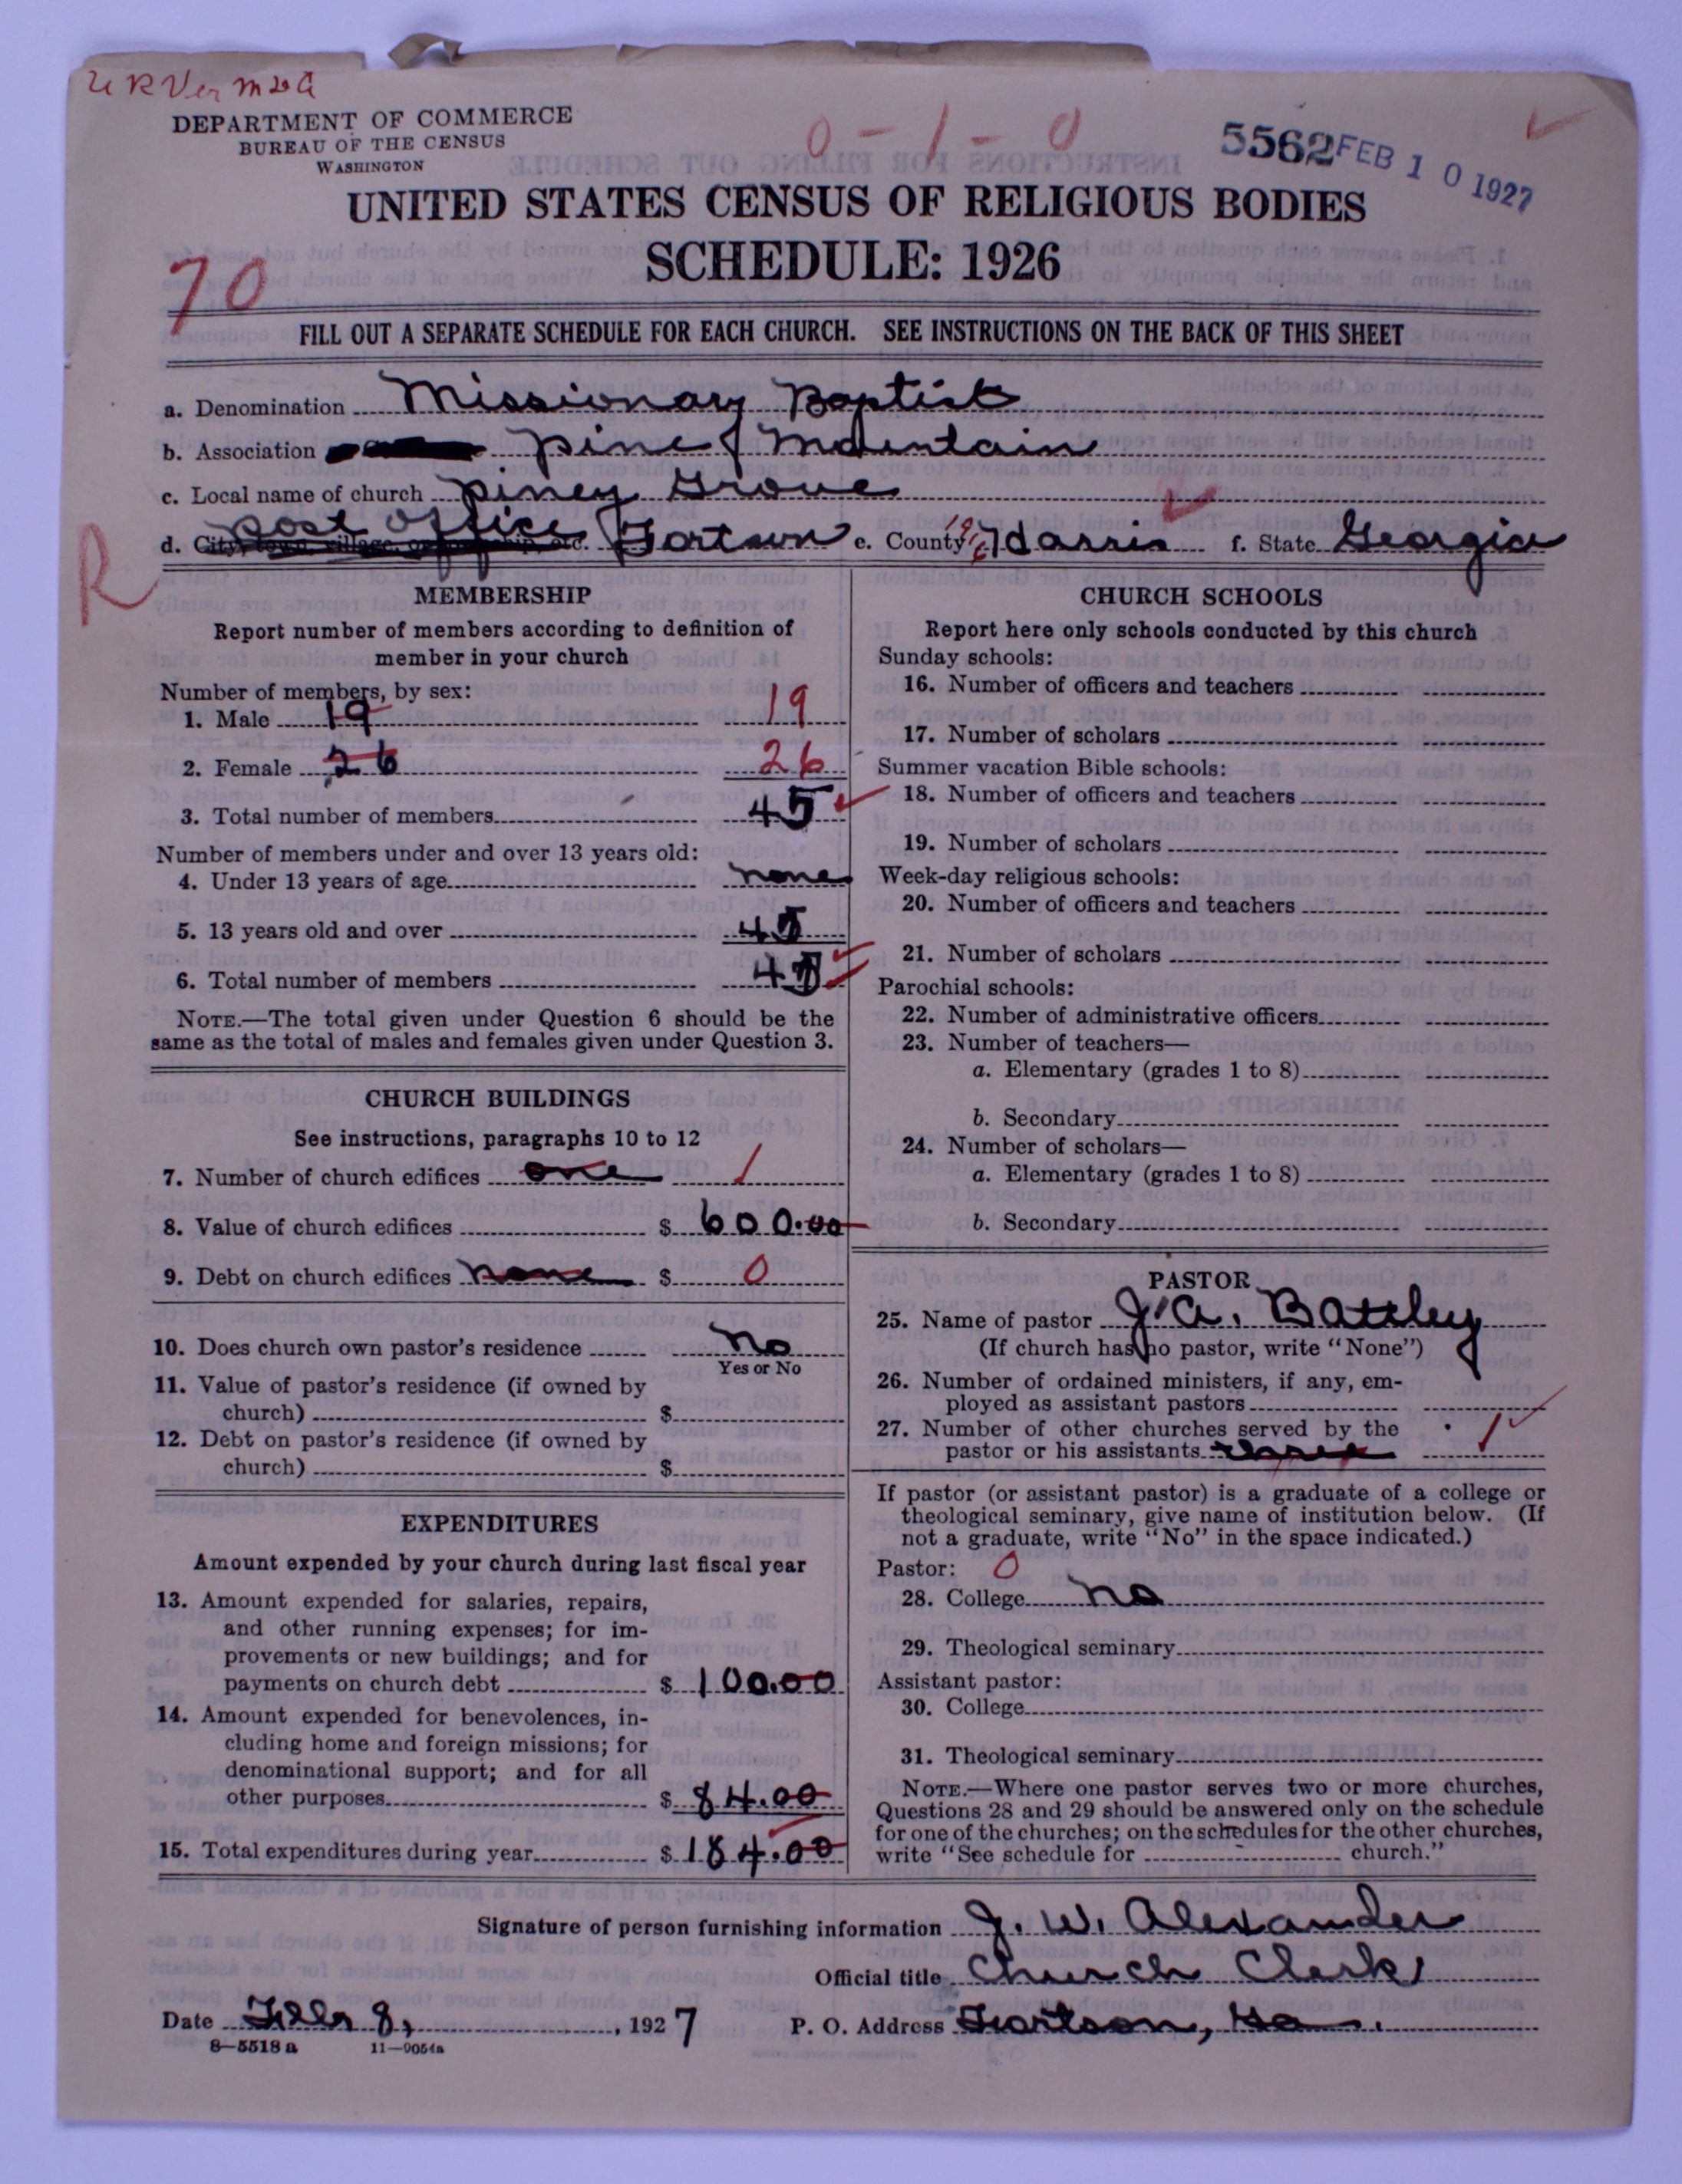 U R Ver
DEPARTMENT OF COMMERCE
BUREAU OF THE CENSUS
WASHINGTON
0 - 1 - 0
5562 FEB 10 1927
UNITED STATES CENSUS OF RELIGIOUS BODIES
SCHEDULE: 1926
70
FILL OUT A SEPARATE SCHEDULE FOR EACH CHURCH. SEE INSTRUCTIONS ON THE BACK OF THIS SHEET
a. Denomination Missionary Baptist
b. Association Pine Mountain
c. Local name of church Piney Grove
d. City, town, village, or township, etc. post office Fortson e. County Harris f. State Georgia
R
MEMBERSHIP
Report number of members according to definition of
member in your church
Number of members, by sex:
1. Male 19 19
2. Female 26 26
3. Total number of members 45
Number of members under and over 13 years old:
4. Under 13 years of age none
5. 13 years old and over 45
6. Total number of members 45
NOTE.—The total given under Question 6 should be the
same as the total of males and females given under Question 3.
CHURCH BUILDINGS
See instructions, paragraphs 10 to 12
7. Number of church edifices one 1
8. Value of church edifices $ 600.00
9. Debt on church edifices none $ 0
10. Does church own pastor's residence No
Yes or No
11. Value of pastor's residence (if owned by
church) $
12. Debt on pastor's residence (if owned by
church) $
EXPENDITURES
Amount expended by your church during last fiscal year
13. Amount expended for salaries, repairs,
and other running expenses; for im-
provements or new buildings; and for
payments on church debt $ 100.00
14. Amount expended for benevolences, in-
cluding home and foreign missions; for
denominational support; and for all
other purposes $ 84.00
15. Total expenditures during year $ 184.00
CHURCH SCHOOLS
Report here only schools conducted by this church
Sunday schools:
16. Number of officers and teachers
17. Number of scholars
Summer vacation Bible schools:
18. Number of officers and teachers
19. Number of scholars
Week-day religious schools:
20. Number of officers and teachers
21. Number of scholars
Parochial schools:
22. Number of administrative officers
23. Number of teachers—
a. Elementary (grades 1 to 8)
b. Secondary
24. Number of scholars—
a. Elementary (grades 1 to 8)
b. Secondary
PASTOR
25. Name of pastor J. A. Battley
(If church has no pastor, write "None")
26. Number of ordained ministers, if any, em-
ployed as assistant pastors
27. Number of other churches served by the
pastor or his assistants 1
If pastor (or assistant pastor) is a graduate of a college or
theological seminary, give name of institution below. (If
not a graduate, write "No" in the space indicated.)
Pastor: 0
28. College No
29. Theological seminary
Assistant pastor:
30. College
31. Theological seminary
NOTE.—Where one pastor serves two or more churches,
Questions 28 and 29 should be answered only on the schedule
for one of the churches; on the schedules for the other churches,
write "See schedule for church."
Signature of person furnishing information J. W. Alexander
Official title Church Clerk
Date Feb 8, 1927 P. O. Address Fortson, Ga.
8—5518 a 11—9054a